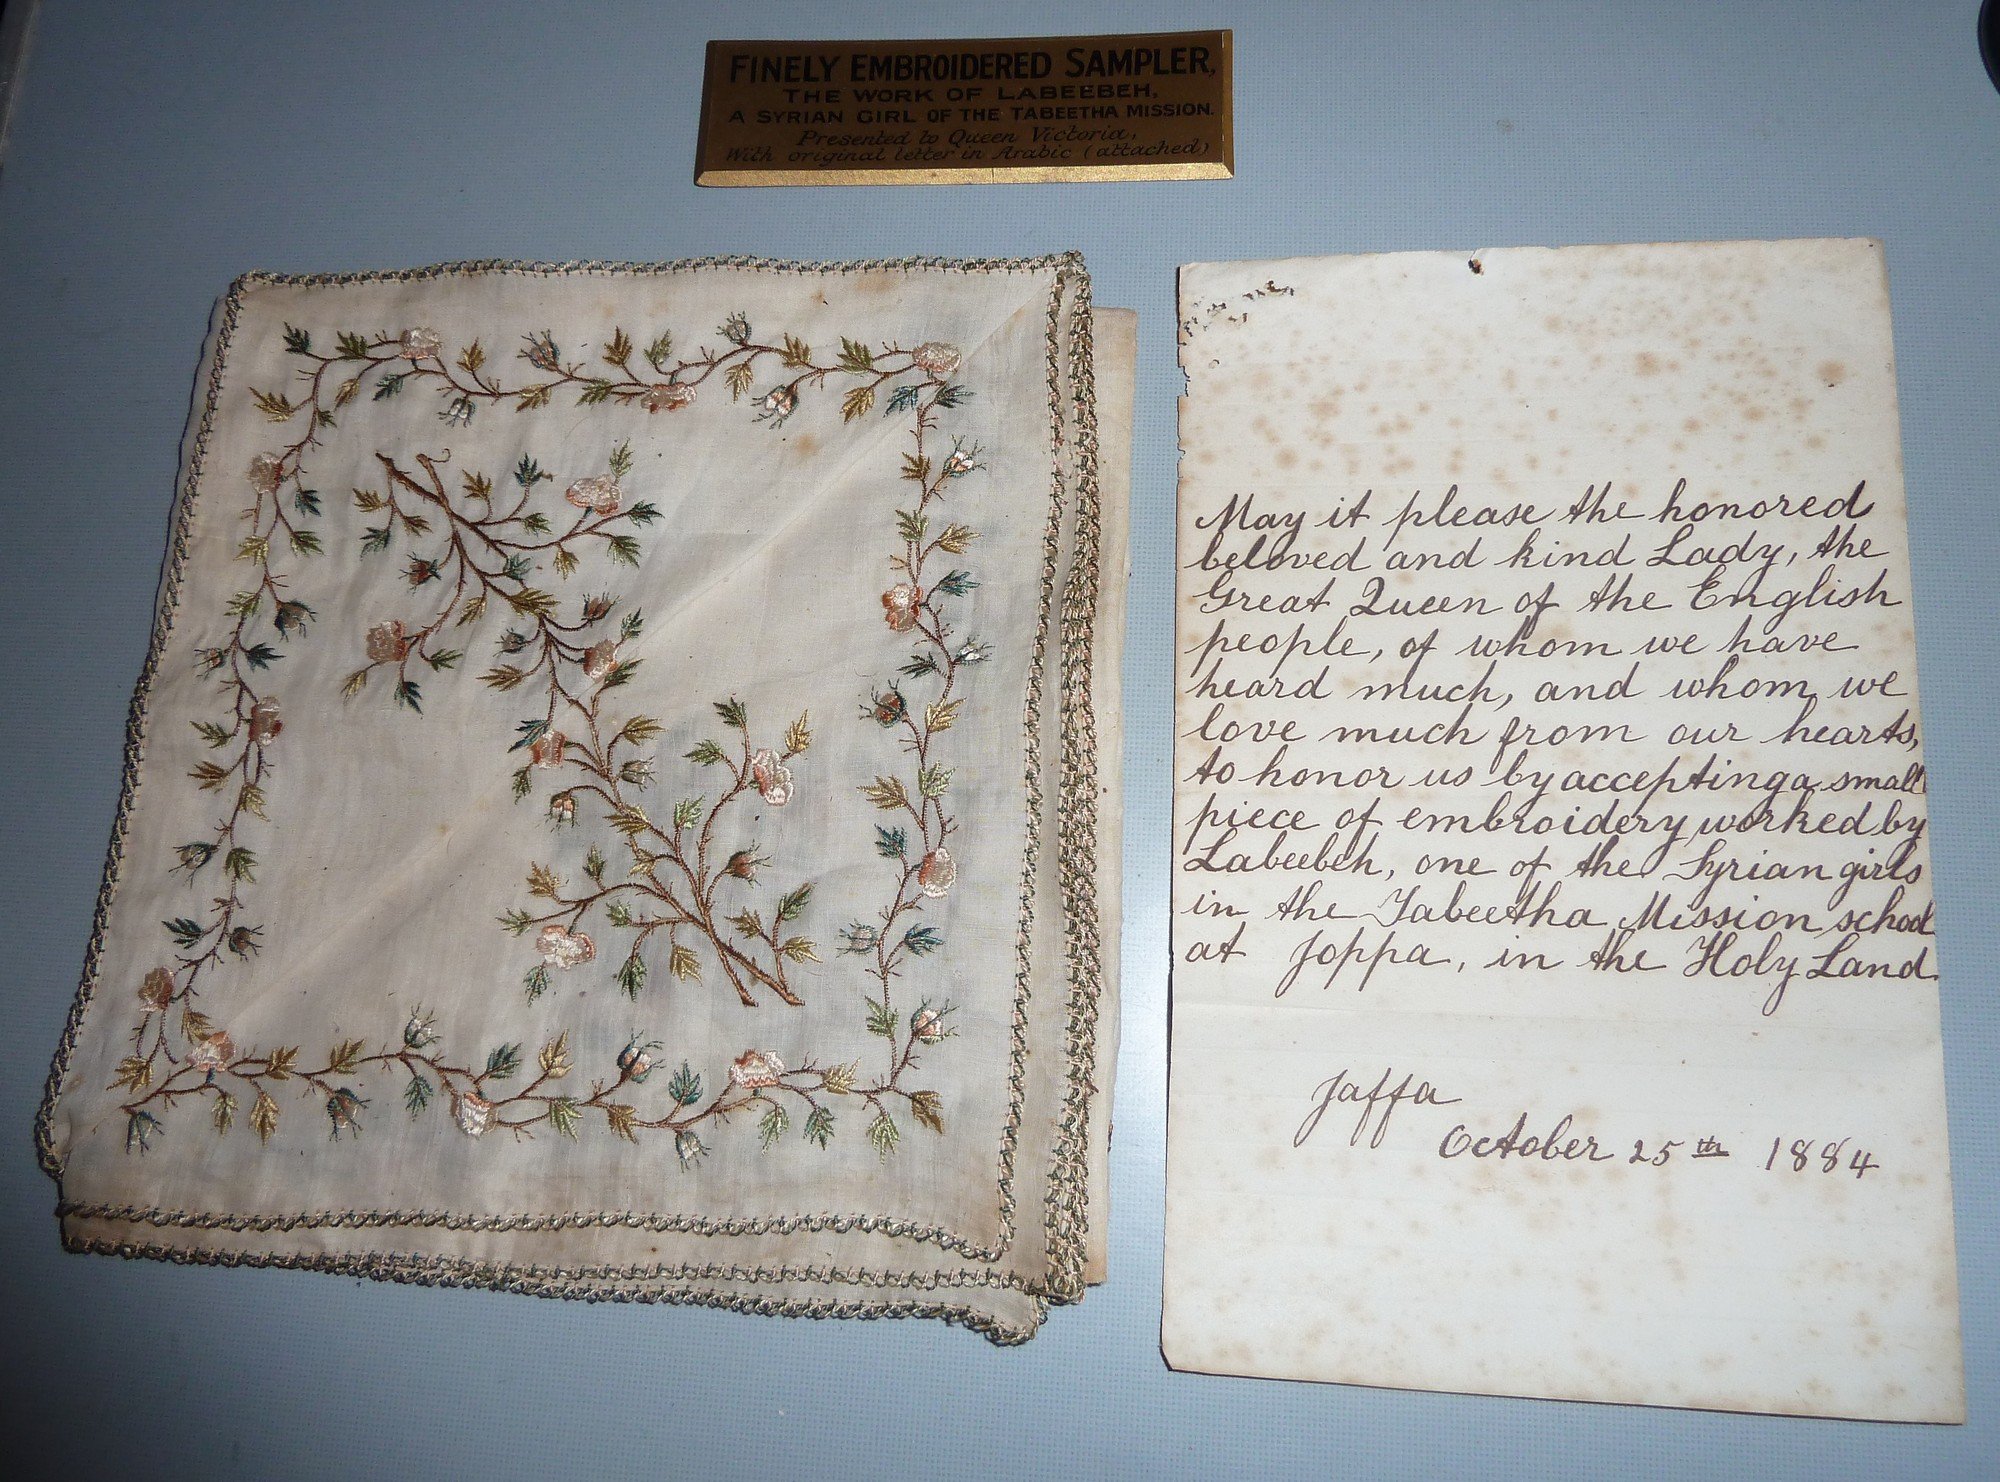 FINELY EMBROIDERED SAMPLER,
THE WORK OF LABEEBEH,
A SYRIAN GIRL OF THE TABEETHA MISSION.
Presented to Queen Victoria,
With original letter in Arabic (attached)
May it please the honored
beloved and kind Lady, the
Great Queen of the English
people, of whom we have
heard much, and whom we
love much from our hearts,
to honor us by accepting a small
piece of embroidery worked by
Labeebeh, one of the Syrian girls
in the Tabeetha Mission school
at Joppa, in the Holy Land.
Jaffa
October 25th 1884